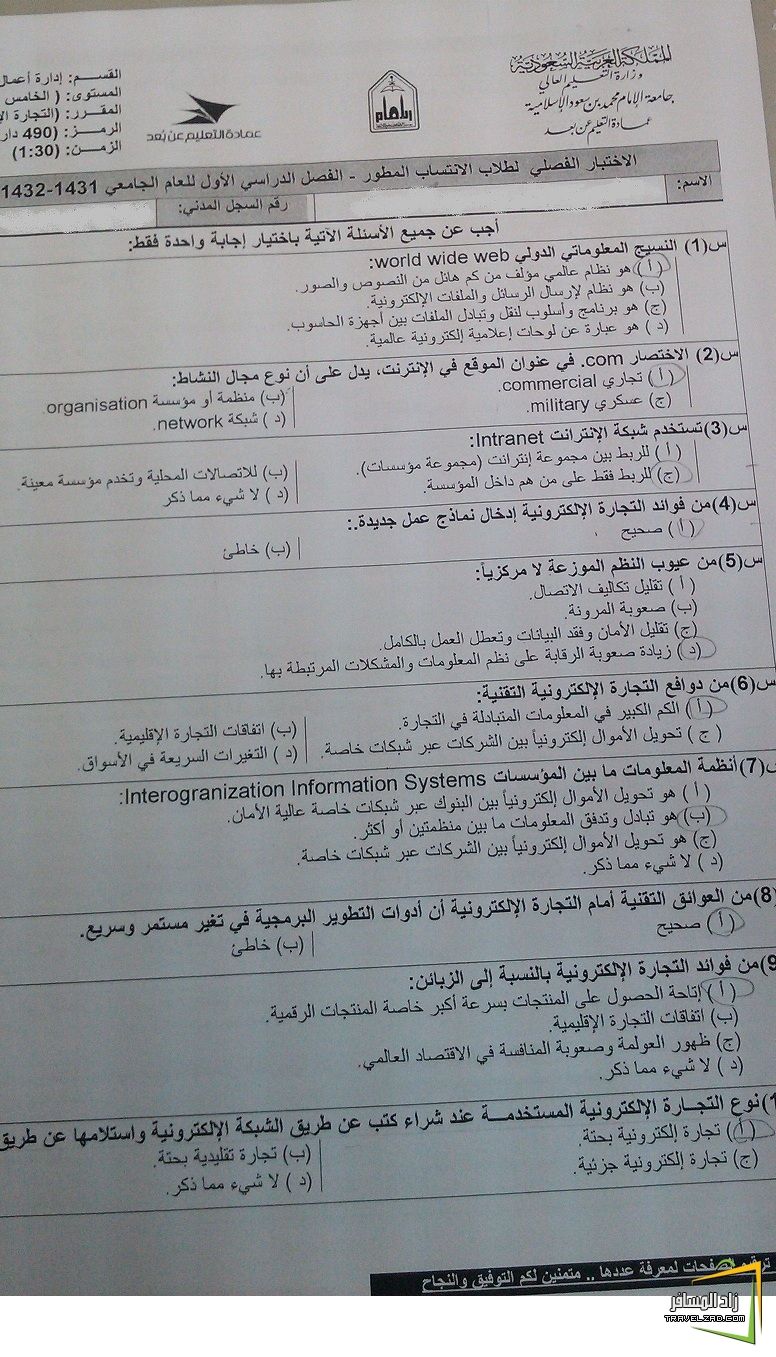 المملكة العربية السعودية
وزارة التعليم العالي
جامعة الإمام محمد بن سعود الإسلامية
عمادة التعليم عن بعد
عمادة التعليم عن بعد
القسم: إدارة أعمال
المستوى: ( الخامس
المقرر: (التجارة الإ
الرمز: (490 دار
الزمن: (1:30)
الاختبار الفصلي لطلاب الانتساب المطور - الفصل الدراسي الأول للعام الجامعي 1431-1432
الاسم:
رقم السجل المدني:
أجب عن جميع الأسئلة الآتية باختيار إجابة واحدة فقط:
س(1) النسيج المعلوماتي الدولي world wide web:
( أ ) هو نظام عالمي مؤلف من كم هائل من النصوص والصور.
(ب) هو نظام لإرسال الرسائل والملفات الإلكترونية.
(ج) هو برنامج وأسلوب لنقل وتبادل الملفات بين أجهزة الحاسوب.
(د ) هو عبارة عن لوحات إعلامية إلكترونية عالمية.
س(2) الاختصار com. في عنوان الموقع في الإنترنت، يدل على أن نوع مجال النشاط:
( أ ) تجاري commercial.
(ب) منظمة أو مؤسسة organisation.
(ج) عسكري military.
(د ) شبكة network.
س(3)تستخدم شبكة الإنترانت Intranet:
( أ ) للربط بين مجموعة إنترانت (مجموعة مؤسسات).
(ب) للاتصالات المحلية وتخدم مؤسسة معينة.
(ج) للربط فقط على من هم داخل المؤسسة.
(د ) لا شيء مما ذكر
س(4)من فوائد التجارة الإلكترونية إدخال نماذج عمل جديدة.:
( أ ) صحيح
(ب) خاطئ
س(5)من عيوب النظم الموزعة لا مركزياً:
( أ ) تقليل تكاليف الاتصال.
(ب) صعوبة المرونة.
(ج) تقليل الأمان وفقد البيانات وتعطل العمل بالكامل.
(د ) زيادة صعوبة الرقابة على نظم المعلومات والمشكلات المرتبطة بها.
س(6)من دوافع التجارة الإلكترونية التقنية:
( أ ) الكم الكبير في المعلومات المتبادلة في التجارة.
(ب) اتفاقات التجارة الإقليمية.
( ج ) تحويل الأموال إلكترونياً بين الشركات عبر شبكات خاصة.
(د ) التغيرات السريعة في الأسواق.
س(7)أنظمة المعلومات ما بين المؤسسات Interogranization Information Systems:
( أ ) هو تحويل الأموال إلكترونياً بين البنوك عبر شبكات خاصة عالية الأمان.
(ب) هو تبادل وتدفق المعلومات ما بين منظمتين أو أكثر.
(ج) هو تحويل الأموال إلكترونياً بين الشركات عبر شبكات خاصة.
(د ) لا شيء مما ذكر.
8)من العوائق التقنية أمام التجارة الإلكترونية أن أدوات التطوير البرمجية في تغير مستمر وسريع.
( أ ) صحيح
(ب) خاطئ
9)من فوائد التجارة الإلكترونية بالنسبة إلى الزبائن:
( أ ) إتاحة الحصول على المنتجات بسرعة أكبر خاصة المنتجات الرقمية.
(ب) اتفاقات التجارة الإقليمية.
(ج) ظهور العولمة وصعوبة المنافسة في الاقتصاد العالمي.
(د ) لا شيء مما ذكر.
1)نوع التجارة الإلكترونية المستخدمة عند شراء كتب عن طريق الشبكة الإلكترونية واستلامها عن طريق
( أ ) تجارة إلكترونية بحتة.
(ب) تجارة تقليدية بحتة.
(ج) تجارة إلكترونية جزئية.
(د ) لا شيء مما ذكر.
لمعرفة عددها .. متمنين لكم التوفيق والنجاح
زاد المسافر
TRAVELZAD.COM